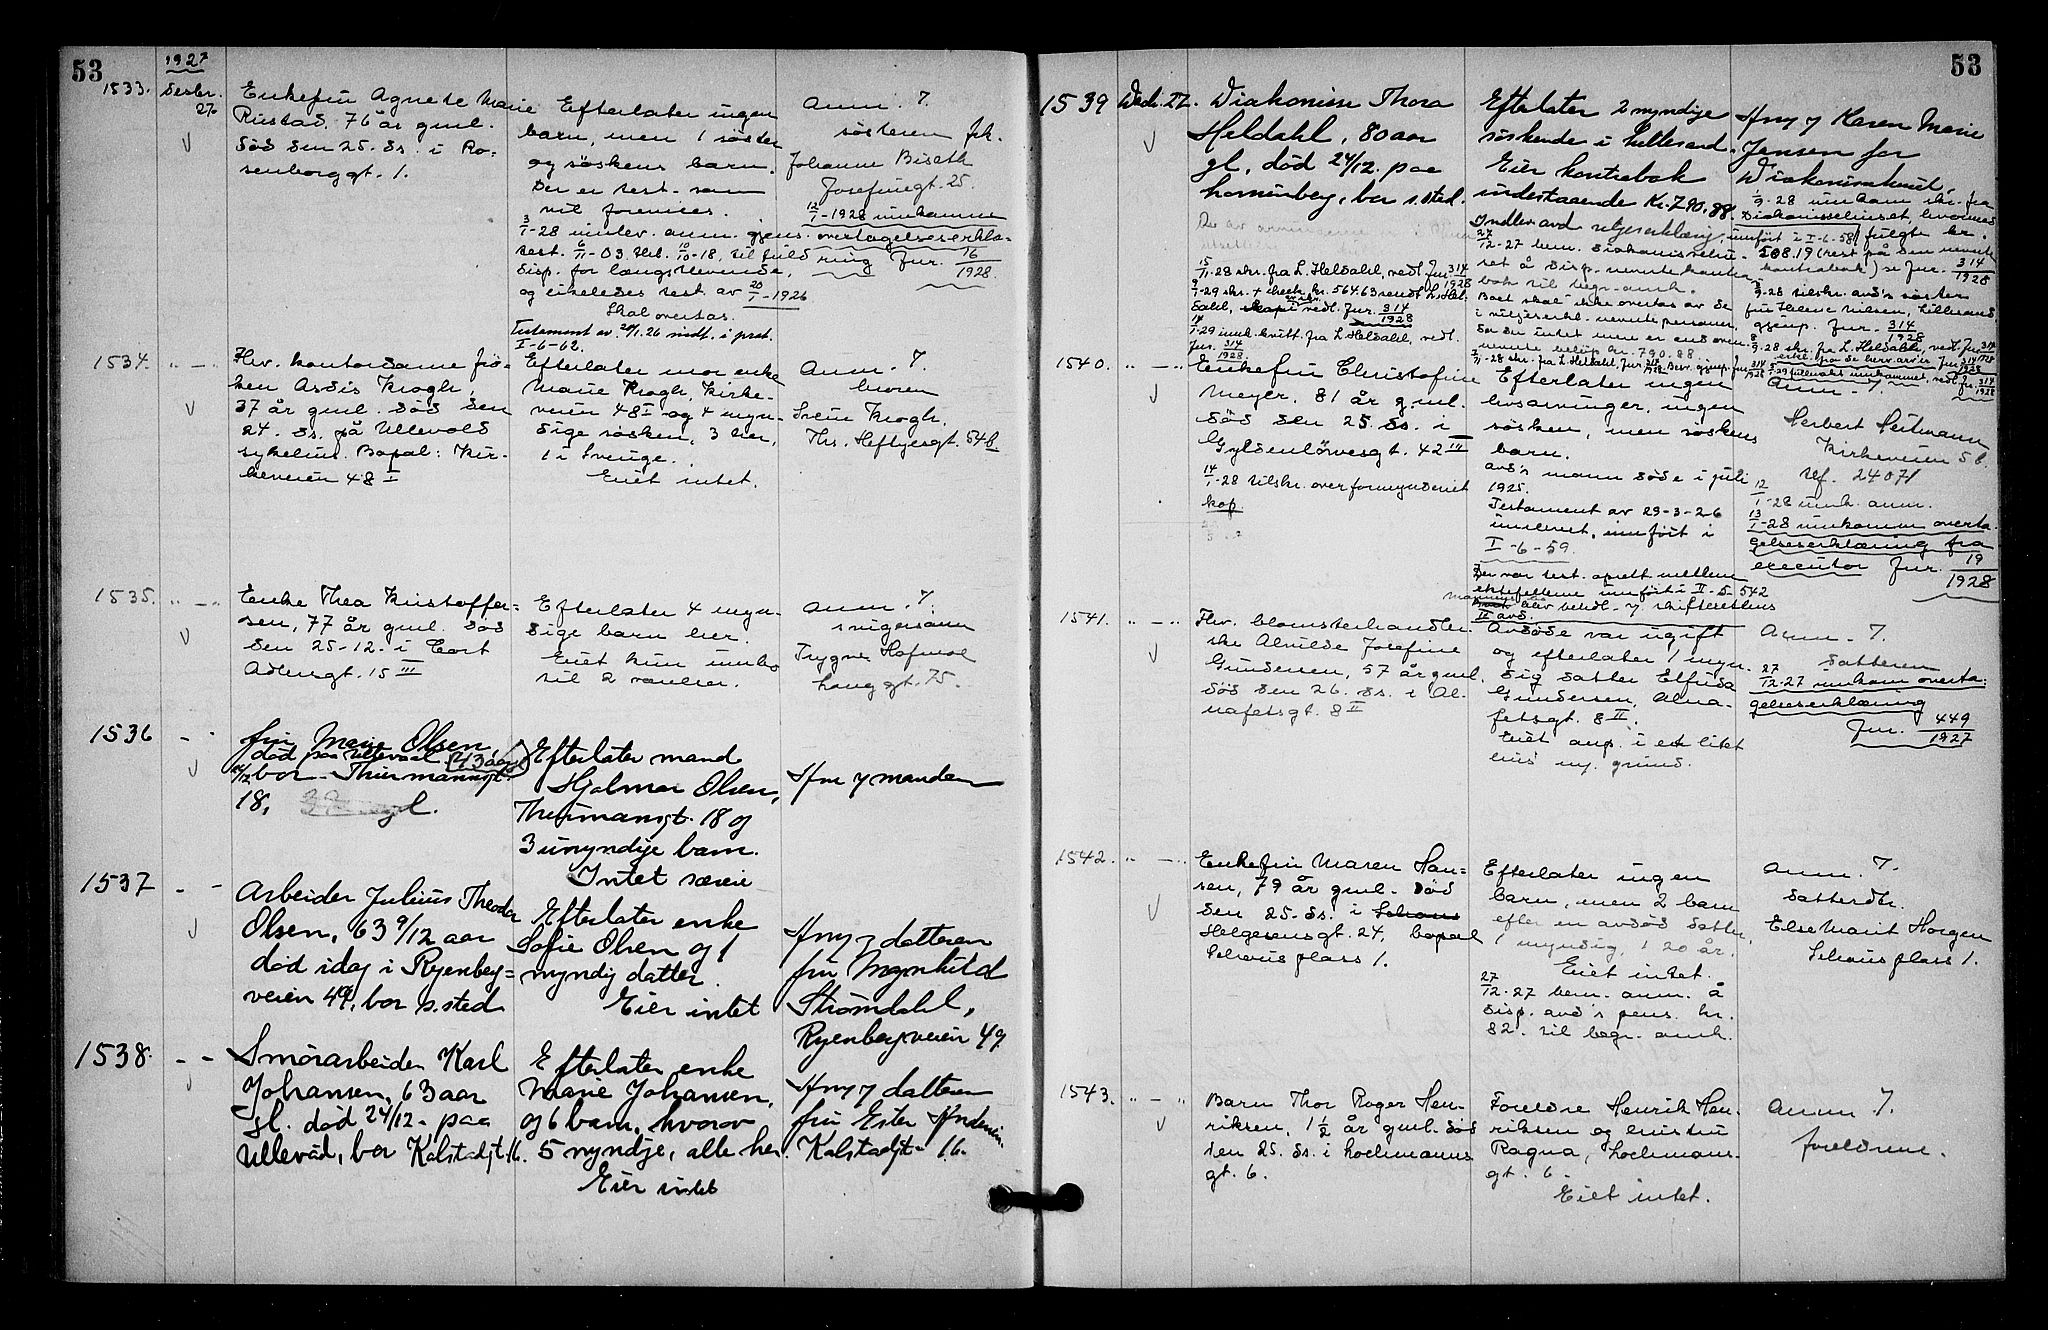 53
1927
1533.
Desbr. 27.
Enkefru Agnete Marie
Rustad. 76 år gml.
död den 25. ds. i Ro-
senborggt. 1.
Efterlater ingen
barn, men 1 söster
og söskens barn.
Der er test. som
vil forevises.
3/1-28 innlev. anm. gjens.
test. 6/11-03, 10/10-18, til fuld
disp. for længstlevende,
og likeledes test. av 20/1-1926
Skal overtas.
Testament av 20/1.26 indf. i prot.
I-6-62.
Anm. 7.
søsteren frk.
Johanne Biseth
Josefinegt. 25.
12/1-1928 innkommer
overtagelseserklæ-
ring Jnr. 16/1928.
1534.
" — "
Hrv. kontordame frö-
ken Asdis Krogh,
37 år gml. död den
24. ds. på Ullevold
sykehus. Bopæl: Kir-
keveien 48 I
Efterlater mor enke
Marie Krogh, Kirke-
veien 48 I og 4 myn-
dige søsken, 3 her,
1 i Sverige.
Eiet intet.
Anm. 7.
broren
Svein Krogh.
Ths. Heftyesgt. 54 b
1535.
" — "
Enke Thea Kristoffer-
sen, 77 år gml. död
den 25-12. i Cort
Adlersgt. 15 III
Efterlater 4 myn-
dige barn her.
Eiet kun innbo
til 2 værelser.
Anm. 7.
svigersønn
Trygve Hofmoe
Langgt. 75.
1536
- "
fru Marie Olsen,
død paa Ullevaal 43 aar
bor Thurmannsgt.
18,
Efterlater mand
Hjalmar Olsen,
Thurmansgt. 18 og
3 umyndige barn.
Intet særeie
Anm 7 manden
1537
- -
Arbeider Julius Theodor
Olsen, 63 9/12 aar
død idag i Ryenberg-
veien 49, bor s. sted
Efterlater enke
Sofie Olsen og 1
myndig datter.
Eier intet
Anm 7 datteren
fru Magnhild
Strømdahl,
Ryenbergveien 49
1538.
- -
Smörarbeider Karl
Johansen, 63 aar
gl. död 24/12. paa
Ullevåd, bor Kalstadgt 16.
Efterlater enke
Marie Johansen,
og 6 barn, hvorav
5 myndige, alle her.
Eier intet
Anm 7 datteren
fru Ester Andersen
Kalstadgt. 16.
53
1539
Desbr. 27.
Diakonisse Thora
Heldahl, 80 aar
gl. død 24/12. paa
Lovisenberg, bor s. sted.
15/11-28 skr. fra L. Heldahl, vedl. Jnr 314/1928
9/1-29 skr. + check kr. 564.63 sendt L. Hel-
dahl, vedl. Jnr. 314/1928
14/1-29 innk. kvitt. fra L. Heldahl, vedl.
Jnr. 314/1928
Efterlater 2 myndige
søskende i Lillesand.
Eier kontrabok
indestaaende Kr. 790.88.
Indlev. avd. viljeserklæring, innført i I-6-58
27/12-27 bem. diakonissehu-
set å disp. nevnte kontra-
bok til begr. omk.
Boet skal ikke overtas av de
i viljeserkl. nevnte personer,
da der intet mere er end oven-
nevnte beløp kr. 790.88
Anm 7 Karen Marie
Jensen for
Diakonissehuset.
1/9-28 innkom skr. fra
Diakonissehuset, hvormed
fulgte kr.
508.19 (rest på den nevnte
kontrabok) se Jnr. 314/1928
3/9-28 tilskr. avd's søster
fru Helene Nilsen, Lillesand,
gjenp. Jnr. 314/1928
8/9-28 skr. fra L. Heldahl, vedl. Jnr 314/1928
1540.
" — "
Enkefru Christofine
Meyer. 81 år gml.
död den 25. ds. i
Gyldenlövesgt. 42 III
14/1-28 tilskr. overformynderiet
kop.
Efterlater ingen
livsarvinger, ingen
søsken, men søskens
barn.
avd's mann døde i juli
1925.
Testament av 29-3-26
innlevert, innfört i
I-6-59.
Der var test. oprett. mellem
ektefellene innfört i II-5-542
blev behdl. 7 skifterettens
II avd.
Anm. 7.
Herbert Heitmann
Kirkeveien 5 b.
tlf. 24071
12/1-28 innk. anm.
13/1-28 innkomm overta-
gelseserklæring fra
executor Jnr. 19/1928
1541.
" — "
Hrv. blomsterhandler-
ske Alvilde Josefine
Gundersen, 57 år gml.
död den 26. ds. i Al-
nafetsgt. 8 II
Avdøde var ugift
og efterlater 1 myn-
dig datter Elfrida
Gundersen, Alna-
fetsgt. 8 II.
Eiet anp. i et litet
hus ny. grund.
Anm. 7.
datteren
27/12-27 innkom overta-
gelseserklæring
Jnr. 449/1927
1542.
" — "
Enkefru Maren Han-
sen, 79 år gml. död
den 25. ds. i Schous
Helgesensgt. 24, bopæl
Schous plass 1.
Efterlater ingen
barn, men 2 barn
efter en avdød datter,
1 myndig, 1 20 år.
Eiet intet.
27/12-27 bem. anm. å
disp. avd's pens. kr.
82. til begr. omk.
Anm. 7.
datterdtr.
Else Marit Horgen
Schous plass 1.
1543.
" — "
Barn Thor Roger Hen-
riksen, 1 1/2 år gml. död
den 25. ds. i Lochmanns
gt. 6.
Foreldre Henrik Hen-
riksen og hustru
Ragna, Lochmans-
gt. 6.
Eiet intet.
Anm. 7.
foreldrene.